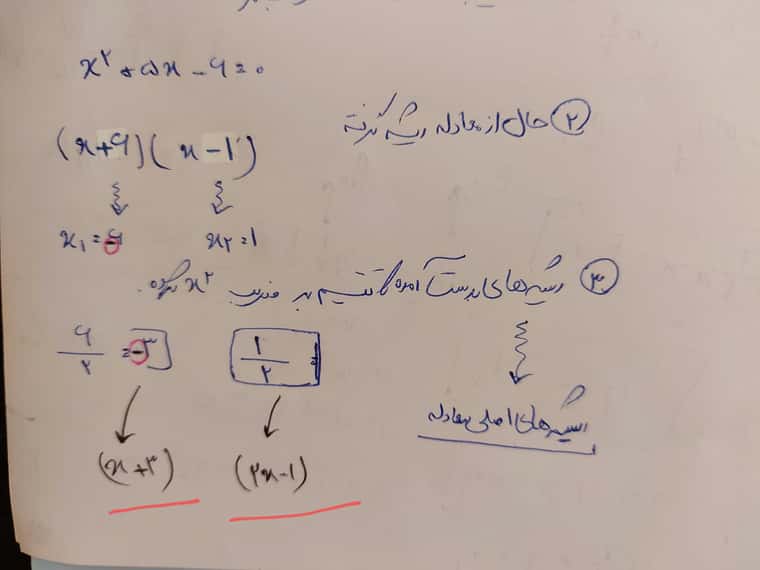 x² + ۵x - ۶ = ۰
② حال از معادله ریشه گرفته
(x+۶)(x-۱)
x₁ = -۶ x₂ = ۱
③ ریشه های بدست آمده را تقسیم بر ضریب x² کرده.
۶/۲ = -۳ ۱/۲ =
ریشه های اصلی معادله
(x+۳) (۲x-۱)